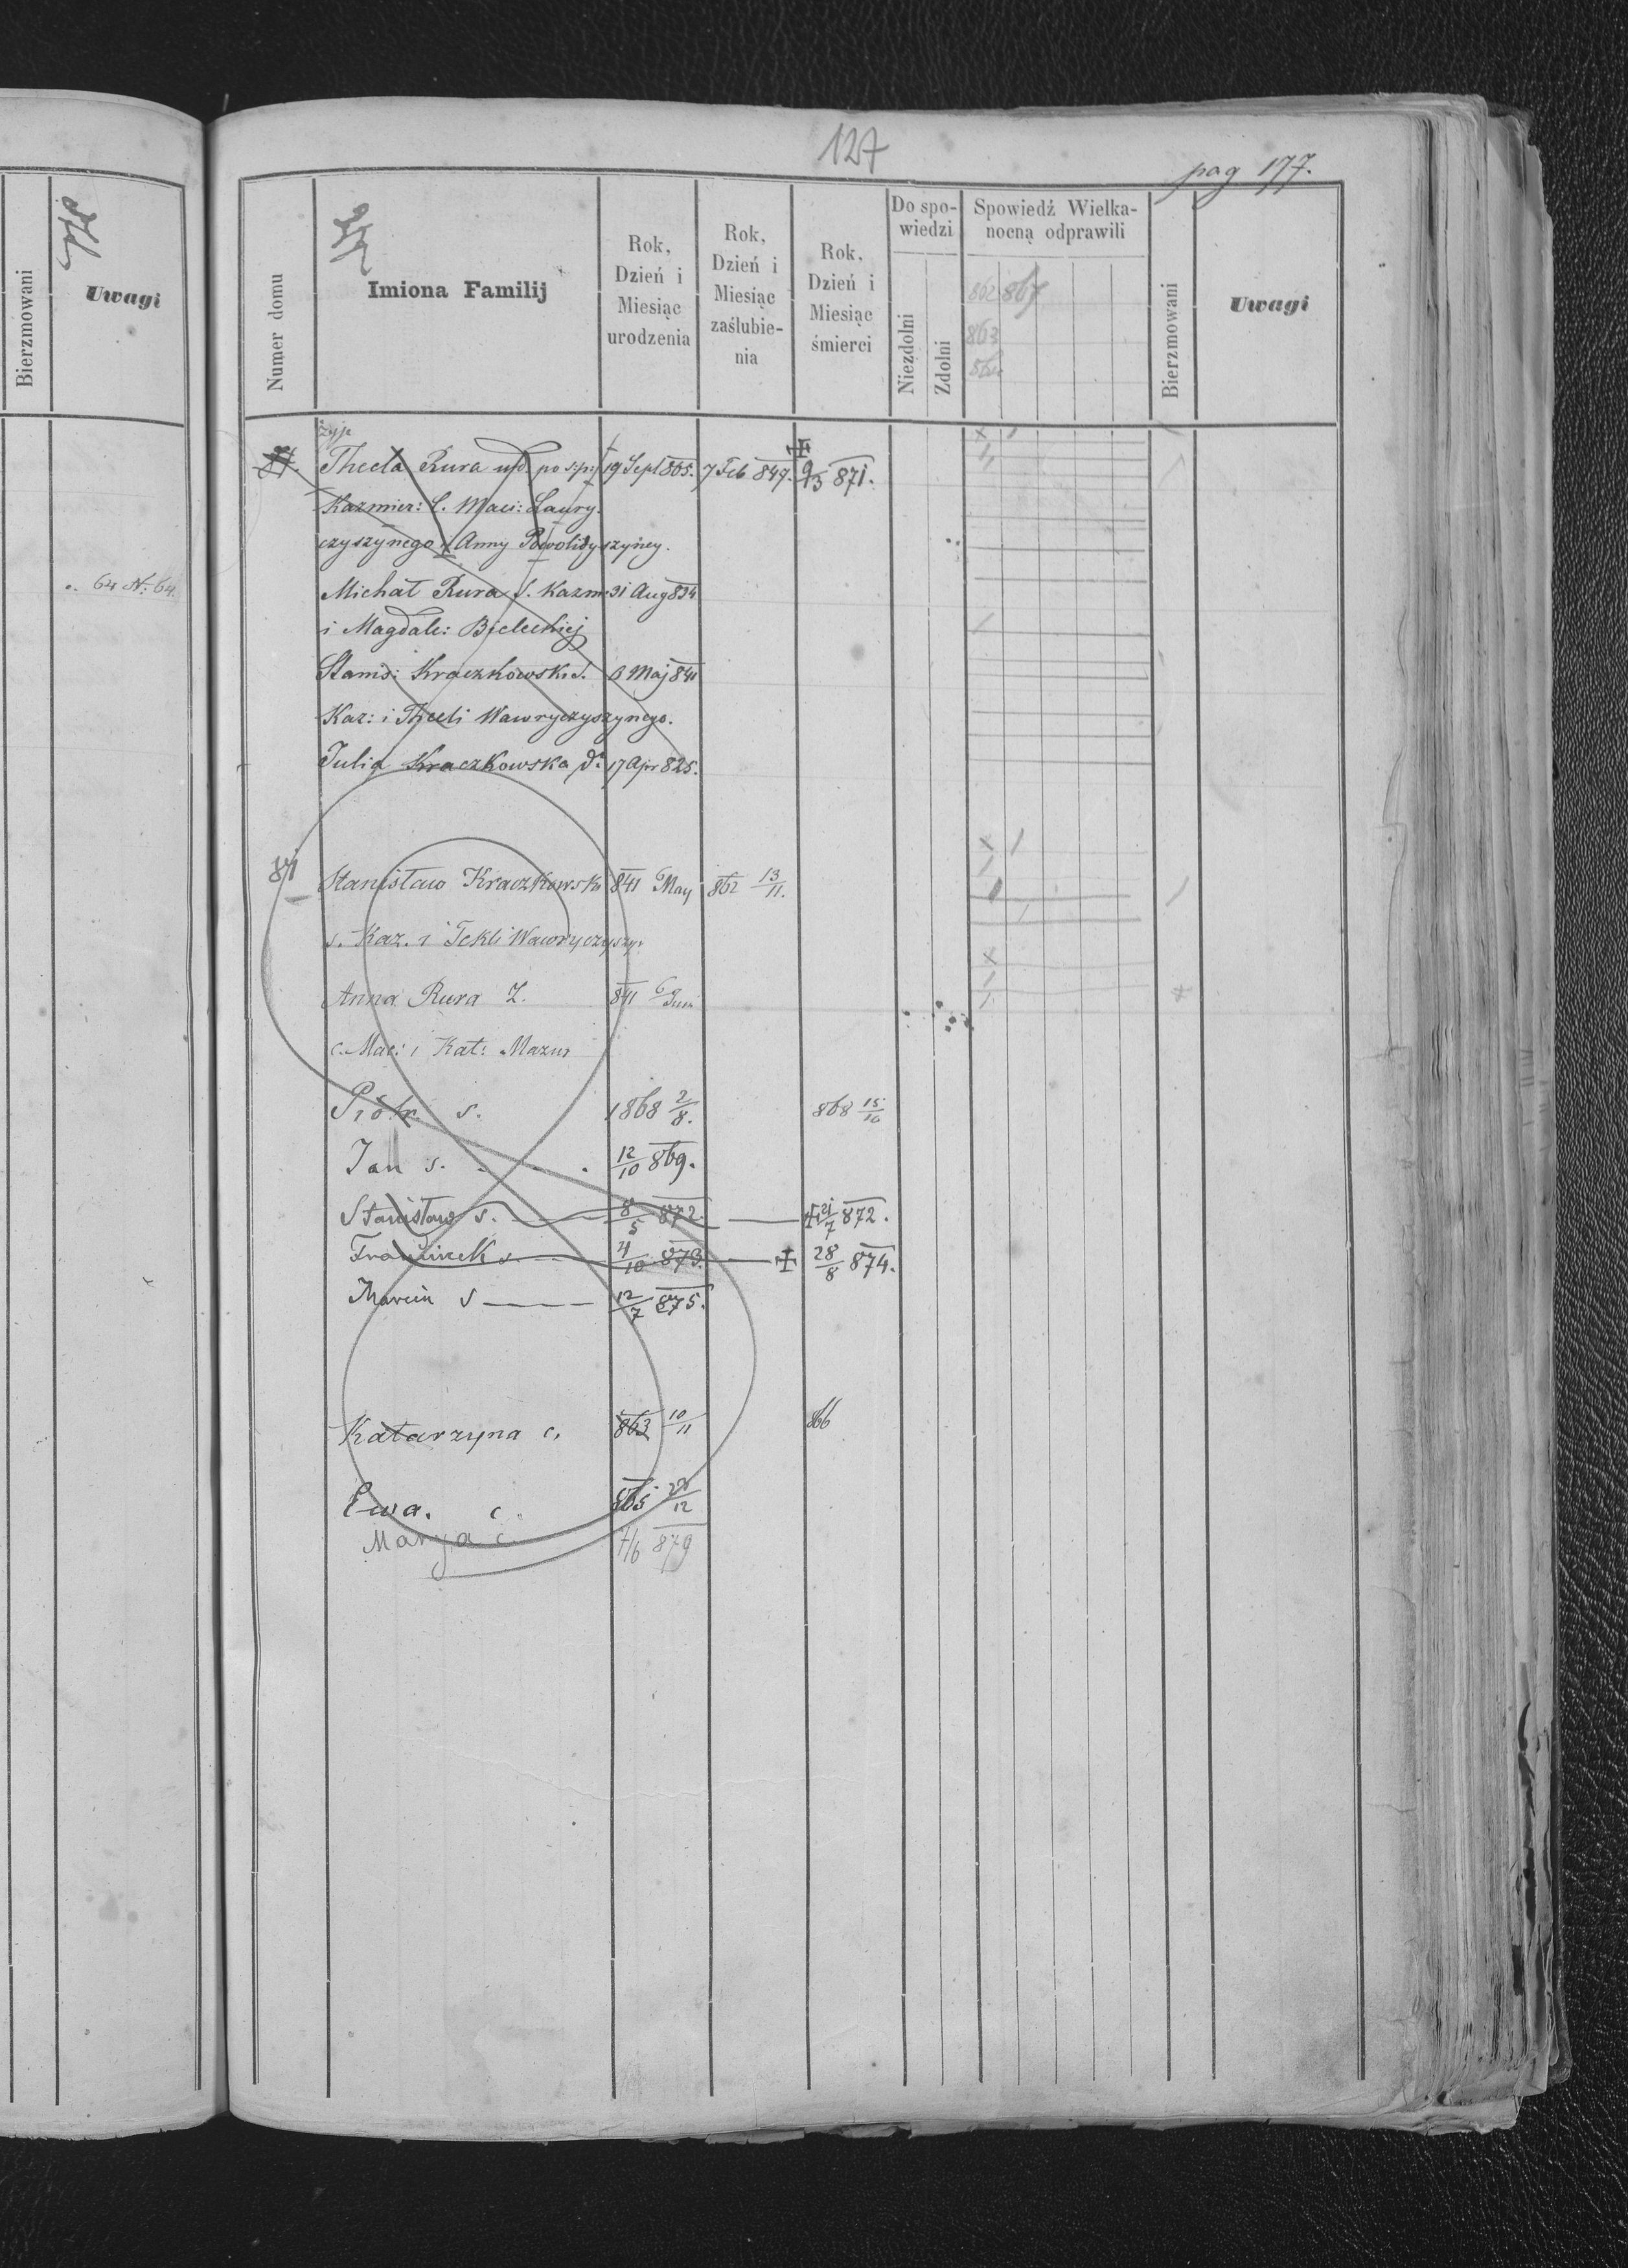 127
pag 177.
Bierzmowani
Uwagi
64 N: 64.
Numer domu
Imiona Familij
Rok, Dzień i Miesiąc urodzenia
Rok, Dzień i Miesiąc zaślubie-nia
Rok, Dzień i Miesiąc śmierci
Do spo-wiedzi
Niezdolni
Zdolni
Spowiedź Wielka-nocną odprawili
862 867
863
864
Bierzmowani
Uwagi
żyje
Thecla Rura wd. po s:p: 19 Sept 805. 7 Feb 849. 9/3 871.
Kazmier: C. Maci: Lawry-
czyszynego i Anny szyney.
Michał Rura S. Kazm: 31 Aug 834
i Magdale: Bieleckiej
Stanis: Kraczkowski S. 6 Maj 841
Kaz: i Thecli Wawryczyszynego.
Julia Kraczkowska 17 Apr 825.
81 Stanisław Kraczkowski 841 6 May 862 13/11.
s. Kaz. i Tekli Wawryczyszyn
Anna Rura Ż. 841 6 Juni
c. Mac: i Kat: Mazur
Piotr s. 1868 2/8. 868 15/10
Jan s. 12/10 869.
Stanisław s. 8/5 872. 21/7 872.
Franciszek s. 4/10 873. 28/8 874.
Marcin s 12/7 875.
Katarzyna c. 863 10/11 866
Ewa. c 865 28/12
Marya c. 7/6 879